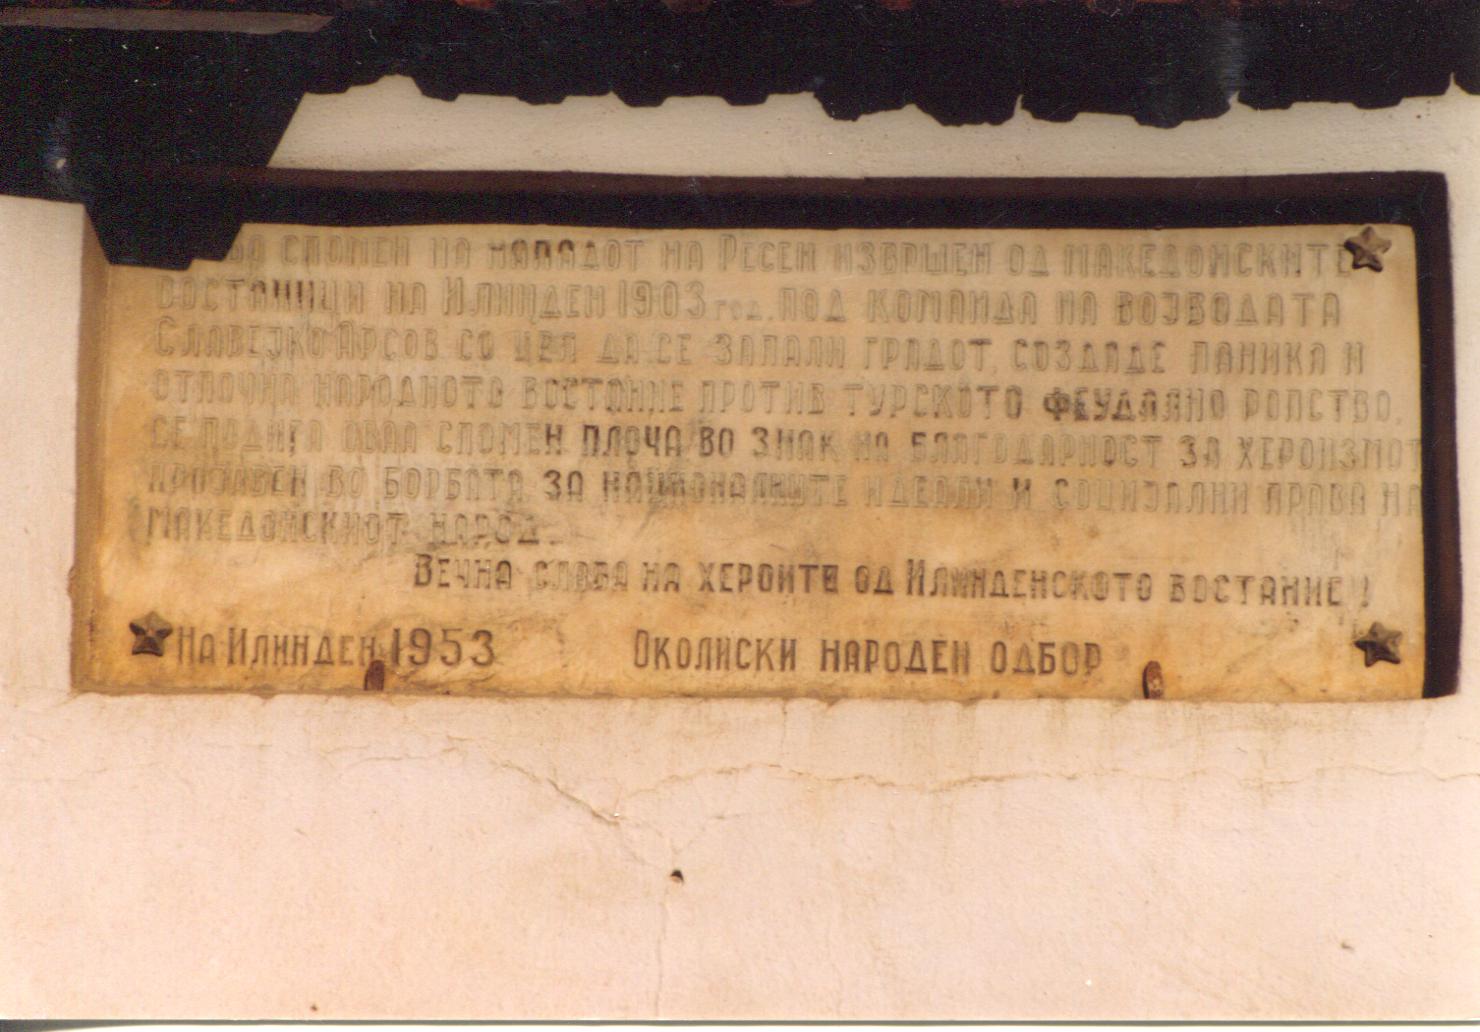 за спомен на нападот на Ресен извршен од македонските
востаници на Илинден 1903 год. под команда на војводата
Славејко Арсов со цел да се запали градот, создаде паника и
отпочне народното востание против турското феудално ропство,
се подига оваа спомен плоча во знак на благодарност за хероизмот
пројавен во борбата за националните идеали и социјални права на
македонскиот народ.
Вечна слава на хероите од Илинденското востание!
На Илинден 1953 Околиски народен одбор